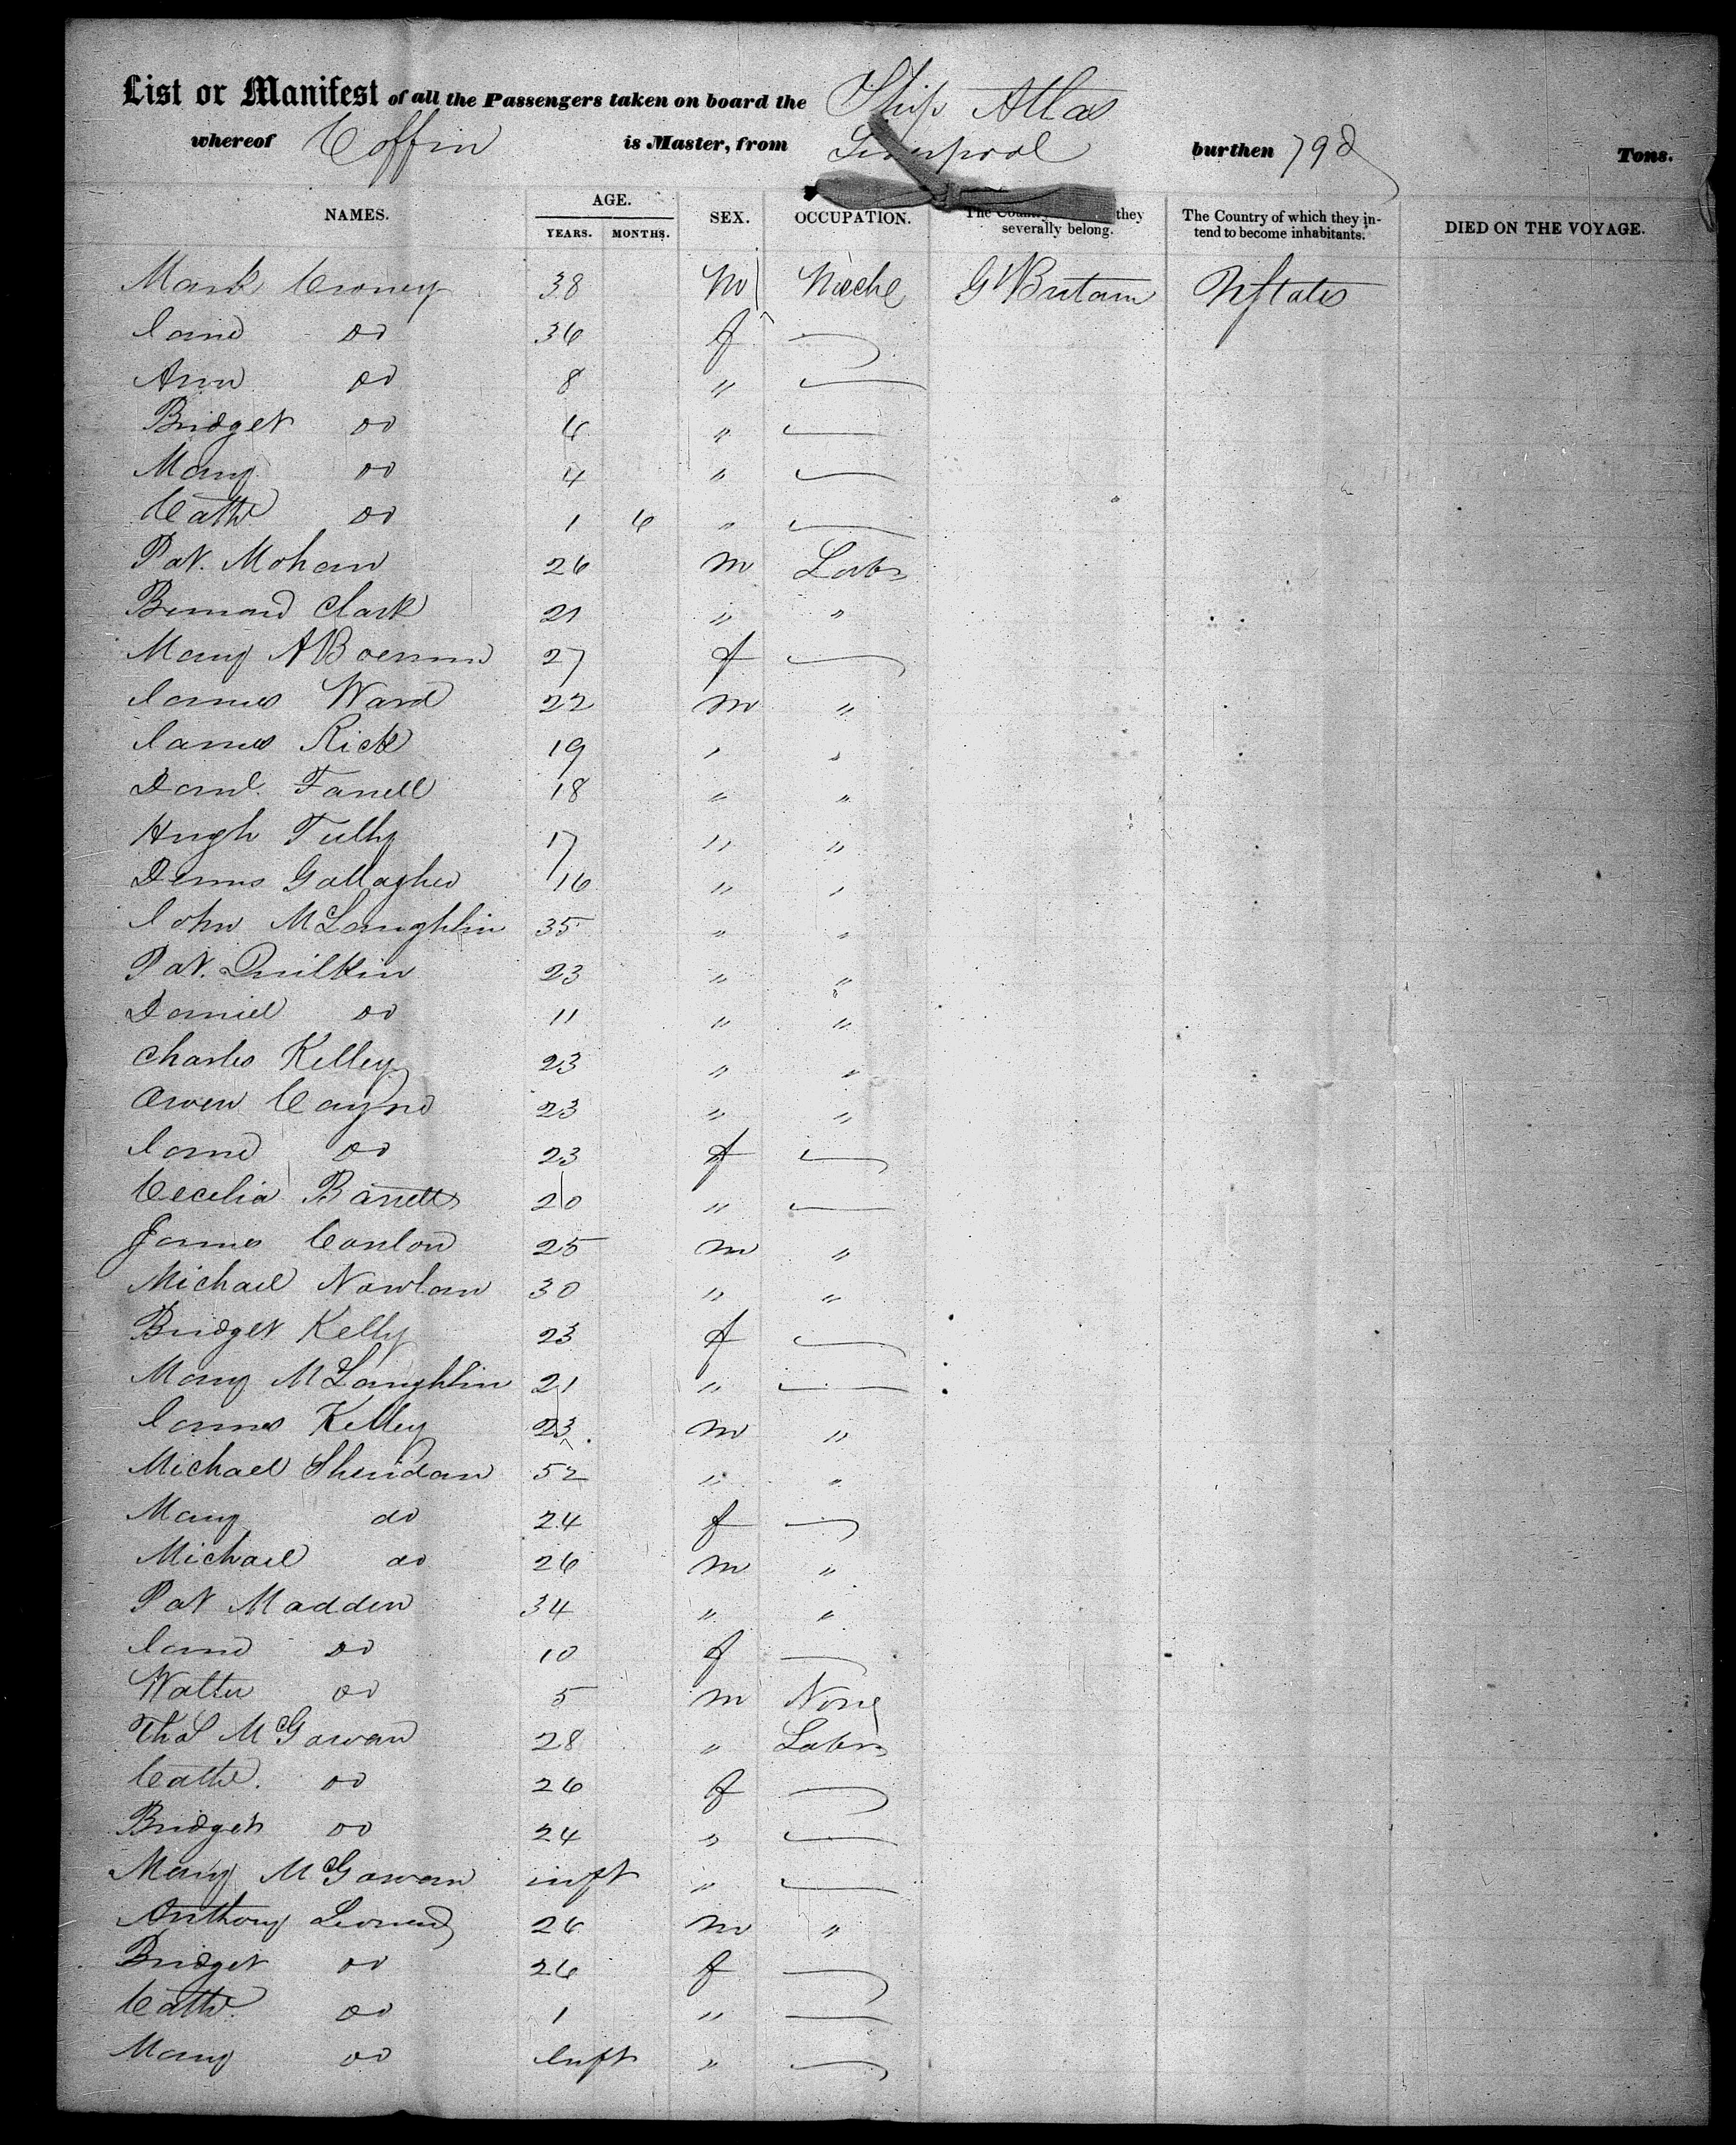 List or Manifest of all the Passengers taken on board the Ship Atlas
whereof Coffin is Master, from Liverpool burthen 798 Tons.
NAMES. AGE. YEARS. MONTHS. SEX. OCCUPATION. The Country they severally belong. The Country of which they intend to become inhabitants. DIED ON THE VOYAGE.
Mark Croney 38 m Meche Gt Britain U States
Jane do 36 f —
Ann do 8 " —
Bridget do 6 " —
Mary do 4 " —
Cathe do 1 6 " —
Pat. Mohan 26 m Labr
Bernard Clark 21 " "
Mary A 27 f —
James Ward 22 m "
James Rick 19 " "
Danl. Farrell 18 " "
Hugh Tully 17 " "
Denns Gallagher 16 " "
John McLaughlin 35 " "
Pat. Quilkin 23 " "
Daniel do 11 " "
Charles Kelley 23 " "
Owen Cayne 23 " "
Jane do 23 f —
Cecilia Barrett 20 " —
James Conlon 25 m "
Michael Nowlan 30 " "
Bridget Kelly 23 f —
Mary McLaughlin 21 " —
James Kelley 23 m "
Michael Sheridan 52 " "
Mary do 24 f —
Michael do 26 m "
Pat Madden 34 " "
Jane do 10 f —
Walter do 5 m None
Thos McGowan 28 " Labr
Cathe. do 26 f —
Bridget do 24 " —
Mary McGowan inft " —
Anthony Leonard 26 m "
Bridget do 26 f —
Cathe. do 1 " —
Mary do Inft " —